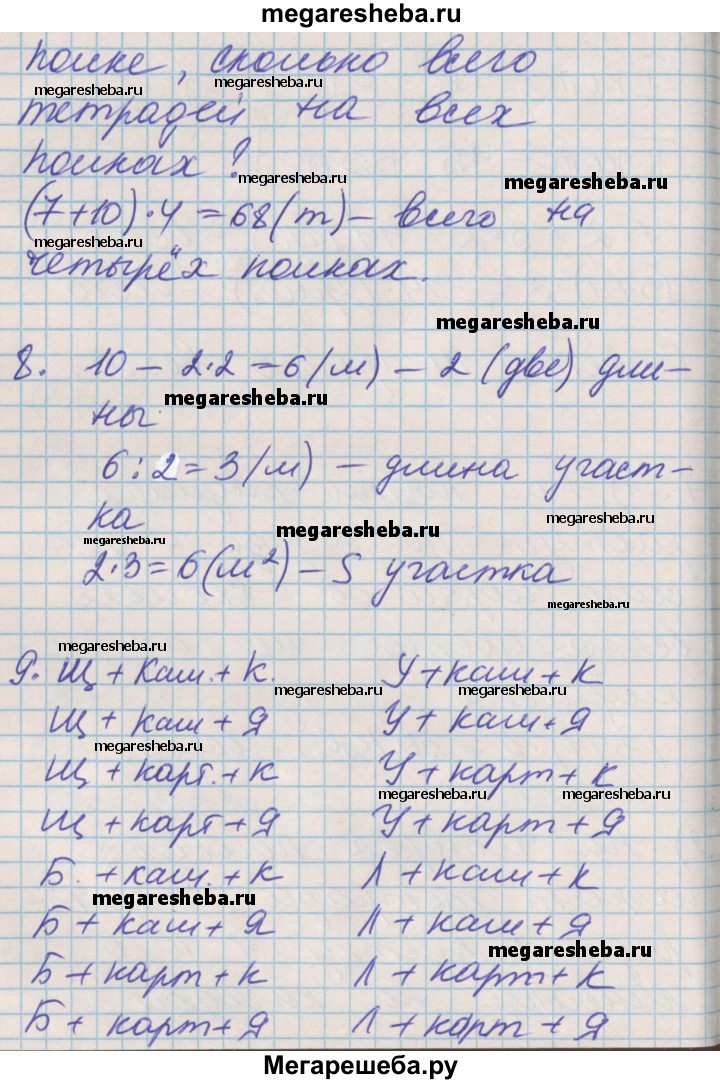 megaresheba.ru
полке, сколько всего
megaresheba.ru megaresheba.ru
тетрадей на всех
полках?
megaresheba.ru megaresheba.ru
(7+10)·4=68(т)– всего на
megaresheba.ru
четырёх полках.
megaresheba.ru
8. 10 – 2·2=6(м) – 2 (две) дли–
megaresheba.ru
ны
6:2=3(м) – длина участ–
megaresheba.ru
ка
megaresheba.ru megaresheba.ru
2·3=6(м²)–S участка
megaresheba.ru
megaresheba.ru
9. Щ+каш.+к. У+каш+к
megaresheba.ru megaresheba.ru
Щ+каш+Я У+каш+Я
megaresheba.ru
Щ+карт.+к У+карт+к
megaresheba.ru megaresheba.ru
Щ+карт+Я У+карт+Я
Б.+каш.+к Л+каш+к
megaresheba.ru
Б+каш+Я Л+каш+Я
megaresheba.ru
Б+карт+к Л+карт+к
Б+карт+Я Л+карт+Я
megaresheba.ru
Мегарешеба.ру